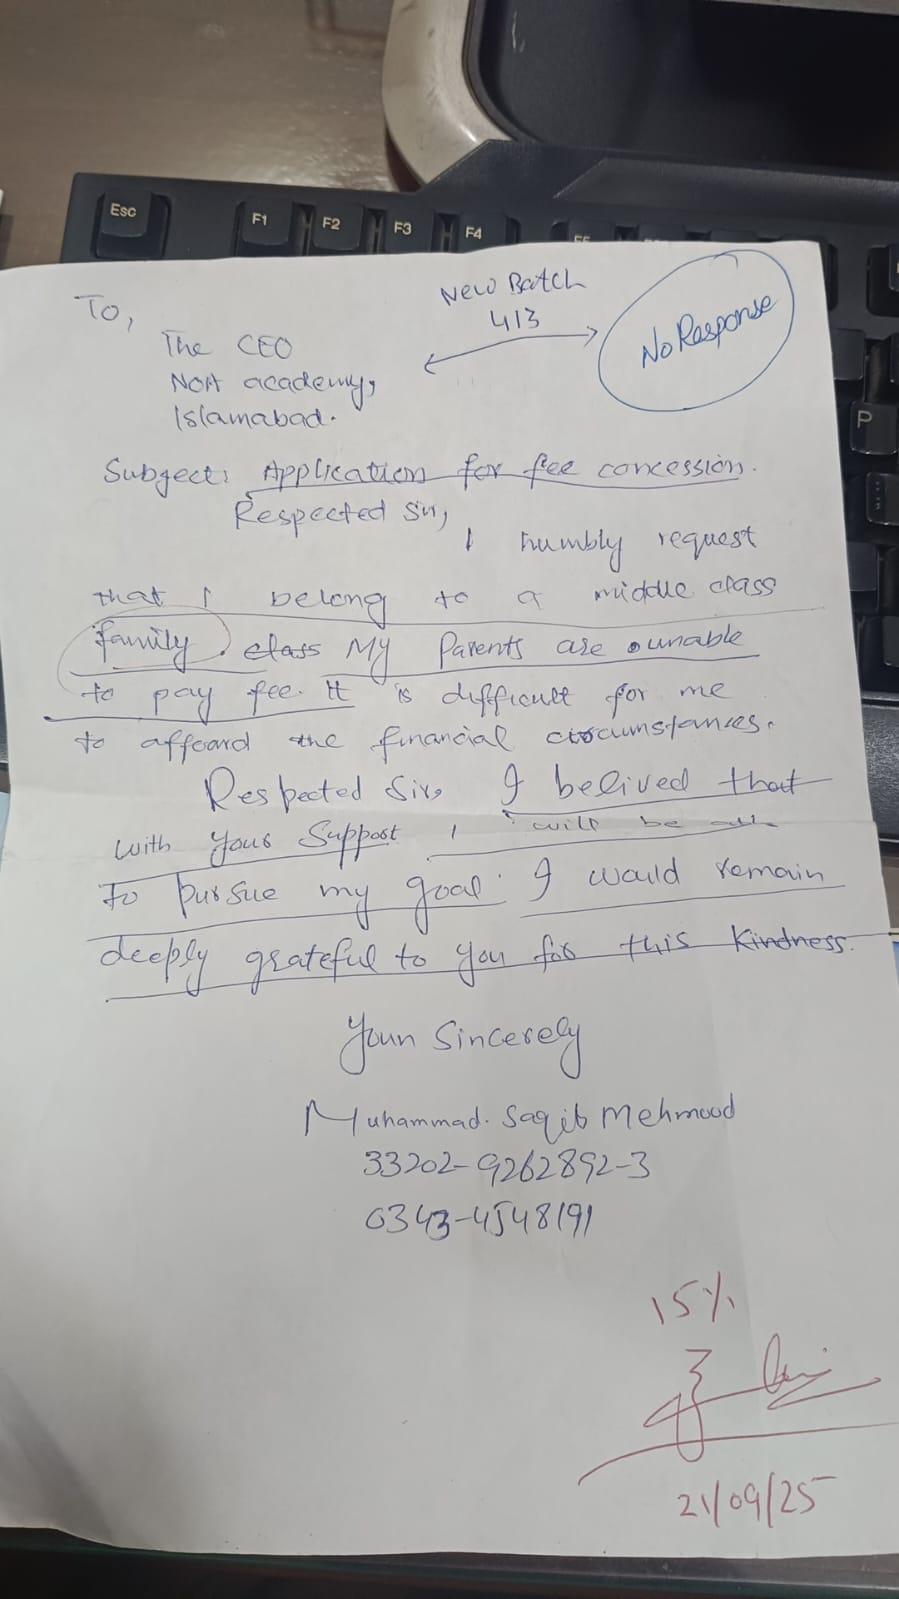 Esc
F1
F2
F3
F4
P
New Batch
413
No Response
To,
The CEO
NOA academy,
Islamabad.
Subject: Application for fee concession.
Respected Sir,
I humbly request
that I belong to a middle class
family. class My Parents are unable
to pay fee. It is difficult for me
to affoard the financial circumstances.
Respected Sir, I belived that
with your Support I will be
To pursue my goal. I would remain
deeply grateful to you for this Kindness.
Your Sincerely
Muhammad. Saqib Mehmood
33202-9262892-3
0343-4548191
15%
21/09/25